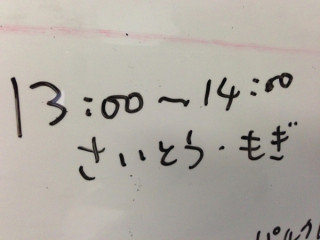 13:00～14:00
さいとう・もぎ